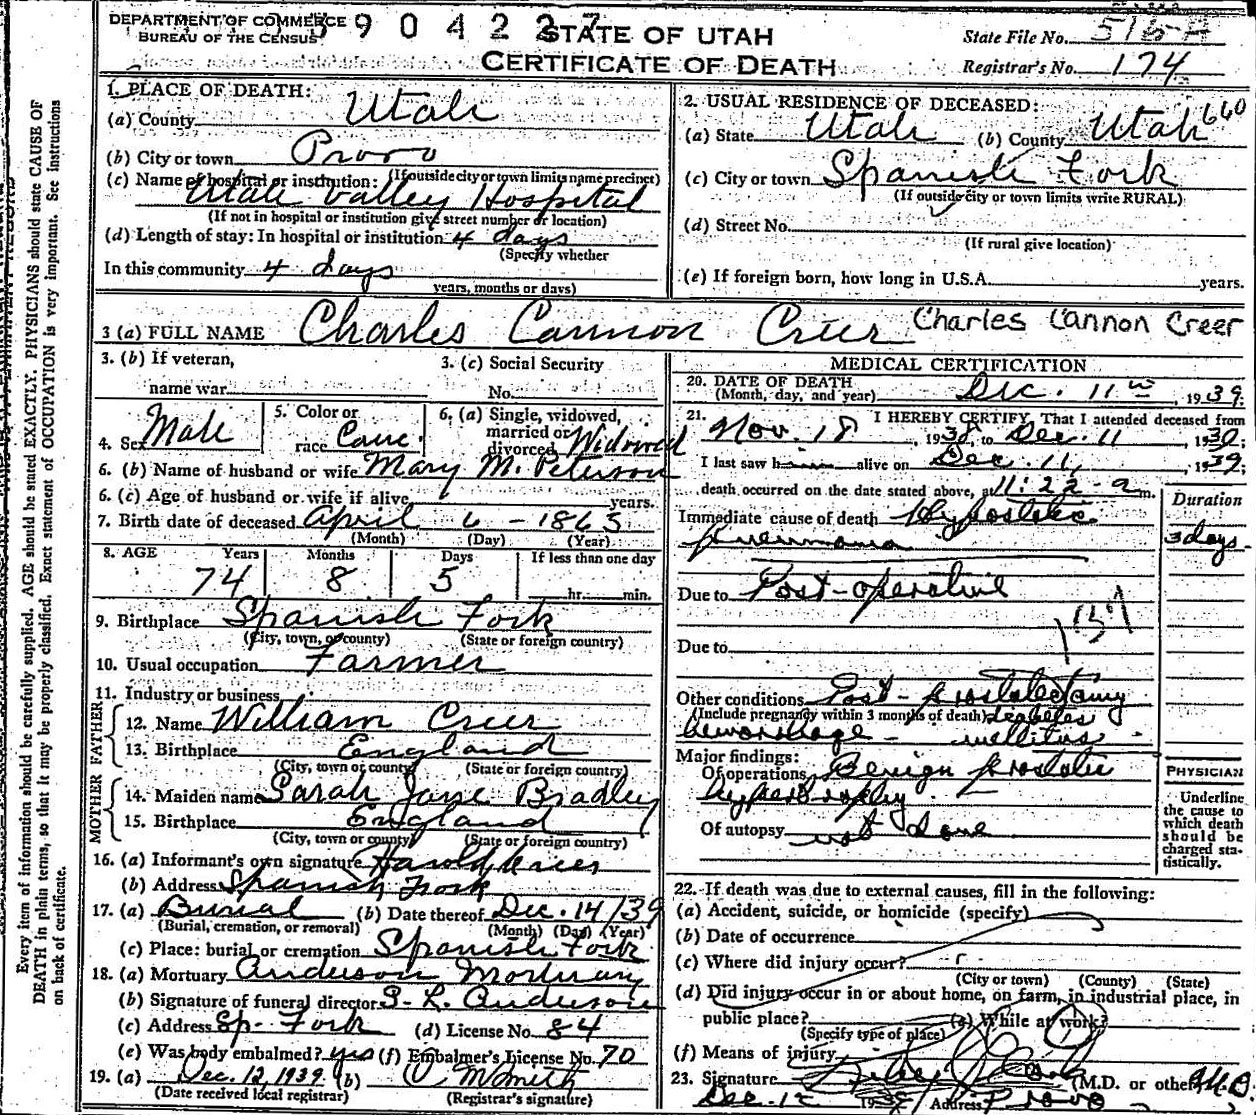 DEPARTMENT OF COMMERCE
BUREAU OF THE CENSUS
904227
STATE OF UTAH
CERTIFICATE OF DEATH
State File No. 516-A
Registrar's No. 174
Every item of information should be carefully supplied. AGE should be stated EXACTLY. PHYSICIANS should state CAUSE OF
DEATH in plain terms, so that it may be properly classified. Exact statement of OCCUPATION is very important. See instructions
on back of certificate.
1. PLACE OF DEATH:
(a) County Utah
(b) City or town Provo
(If outside city or town limits name precinct)
(c) Name of hospital or institution:
Utah Valley Hospital
(If not in hospital or institution give street number or location)
(d) Length of stay: In hospital or institution 4 days
(Specify whether
In this community 4 days
years, months or days)
2. USUAL RESIDENCE OF DECEASED:
(a) State Utah (b) County Utah 660
(c) City or town Spanish Fork
(If outside city or town limits write RURAL)
(d) Street No.
(If rural give location)
(e) If foreign born, how long in U.S.A. years.
3 (a) FULL NAME Charles Cannon Creer Charles Cannon Creer
3. (b) If veteran,
name war
3. (c) Social Security
No.
4. Sex Male
5. Color or
race Cauc.
6. (a) Single, widowed,
married or
divorced Widowed
6. (b) Name of husband or wife Mary M. Peterson
6. (c) Age of husband or wife if alive years.
7. Birth date of deceased April 6 - 1865
(Month) (Day) (Year)
8. AGE Years Months Days If less than one day
74 8 5 hr. min.
9. Birthplace Spanish Fork
(City, town, or county) (State or foreign country)
10. Usual occupation Farmer
11. Industry or business
FATHER
12. Name William Creer
13. Birthplace England
(City, town or county) (State or foreign country)
MOTHER
14. Maiden name Sarah Jane Bradley
15. Birthplace England
(City, town or county) (State or foreign country)
16. (a) Informant's own signature Harold Creer
(b) Address Spanish Fork
17. (a) Burial (b) Date thereof Dec. 14/39
(Burial, cremation, or removal) (Month) (Day) (Year)
(c) Place: burial or cremation Spanish Fork
18. (a) Mortuary Anderson Mortuary
(b) Signature of funeral director L. Anderson
(c) Address Sp. Fork (d) License No. 84
(e) Was body embalmed? yes (f) Embalmer's License No. 70
19. (a) Dec. 12, 1939 (b) Smith
(Date received local registrar) (Registrar's signature)
MEDICAL CERTIFICATION
20. DATE OF DEATH
(Month, day, and year) Dec. 11th, 1939.
21. I HEREBY CERTIFY, That I attended deceased from
Nov. 18, 1939, to Dec. 11, 1939;
I last saw him alive on Dec. 11, 1939;
death occurred on the date stated above, at 11:22 a m.
Duration
Immediate cause of death Hypostatic
pneumonia 3 days
Due to Post-operative
137
Due to
Other conditions Post-prostatectomy
(Include pregnancy within 3 months of death) diabetes
hemorrhage - mellitus.
Major findings:
Of operations Benign prostatic
hypertrophy.
Of autopsy not done
PHYSICIAN
Underline
the cause to
which death
should be
charged sta-
tistically.
22. If death was due to external causes, fill in the following:
(a) Accident, suicide, or homicide (specify)
(b) Date of occurrence
(c) Where did injury occur?
(City or town) (County) (State)
(d) Did injury occur in or about home, on farm, in industrial place, in
public place? (e) While at work?
(Specify type of place)
(f) Means of injury
23. Signature (M.D. or other) M.D.
Dec. 12 1939 Address Provo